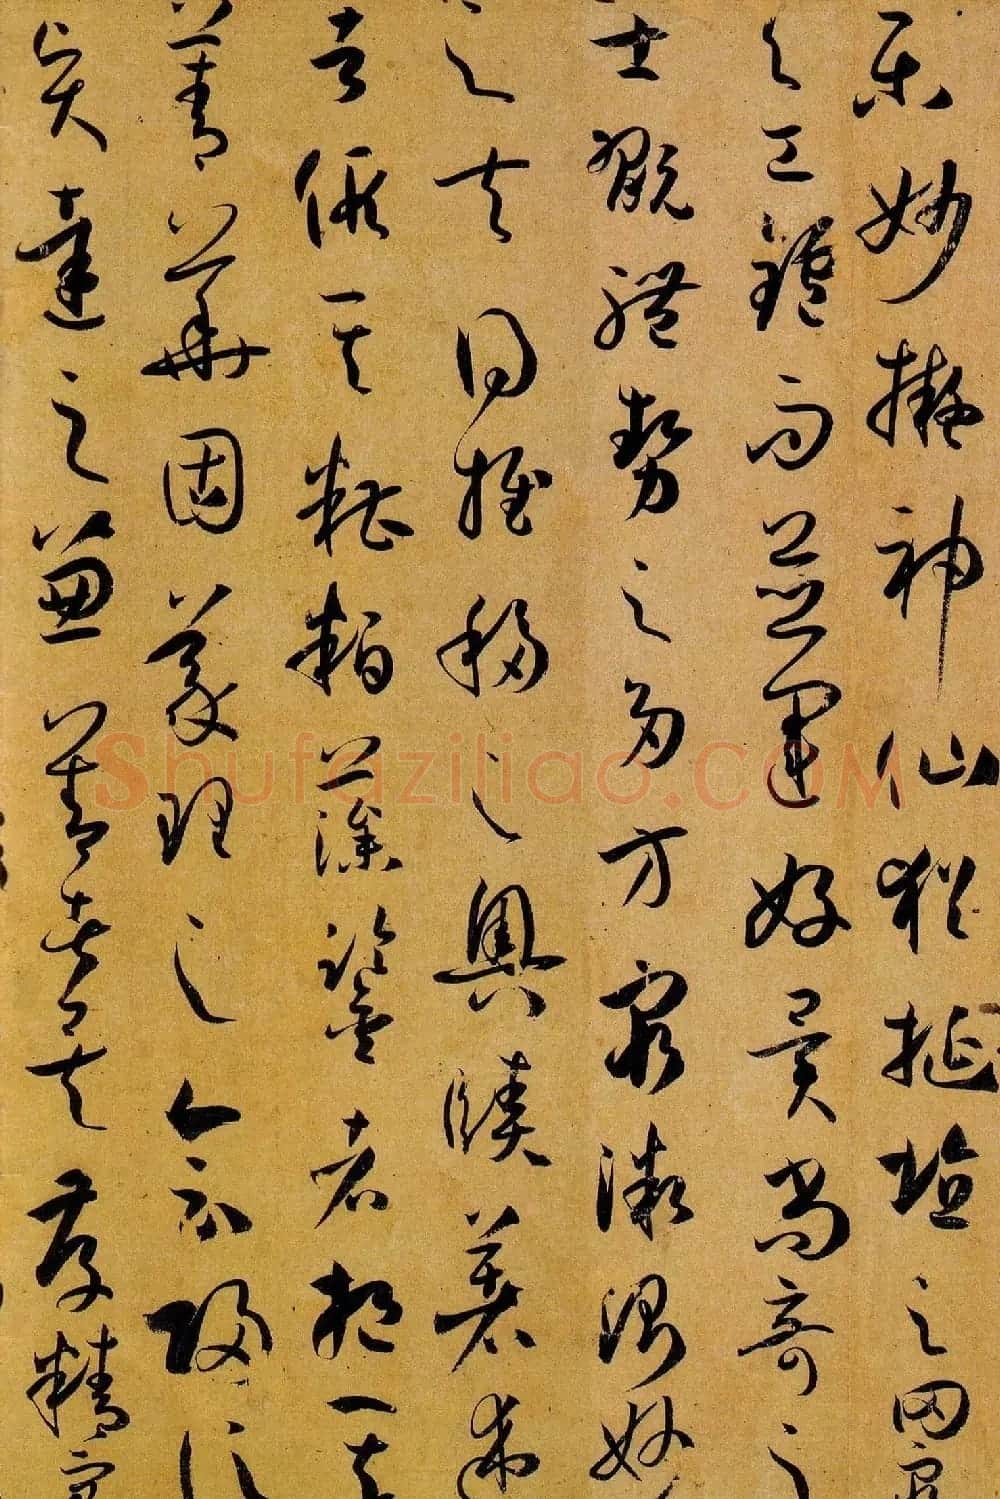 樂妙擬神仙猶埏埴之罔窮
與工鑪而並運好異尚奇之
士翫體勢之多方窮微測妙
之夫得推移之奧賾著述
者假其糟粕藻鑒者挹其
菁華固義理之會歸信
賢達之兼善者矣存精寓
Shufaziliao.COM